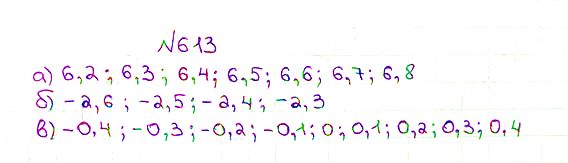 №613
а) 6,2; 6,3; 6,4; 6,5; 6,6; 6,7; 6,8
б) -2,6; -2,5; -2,4; -2,3
в) -0,4; -0,3; -0,2; -0,1; 0; 0,1; 0,2; 0,3; 0,4